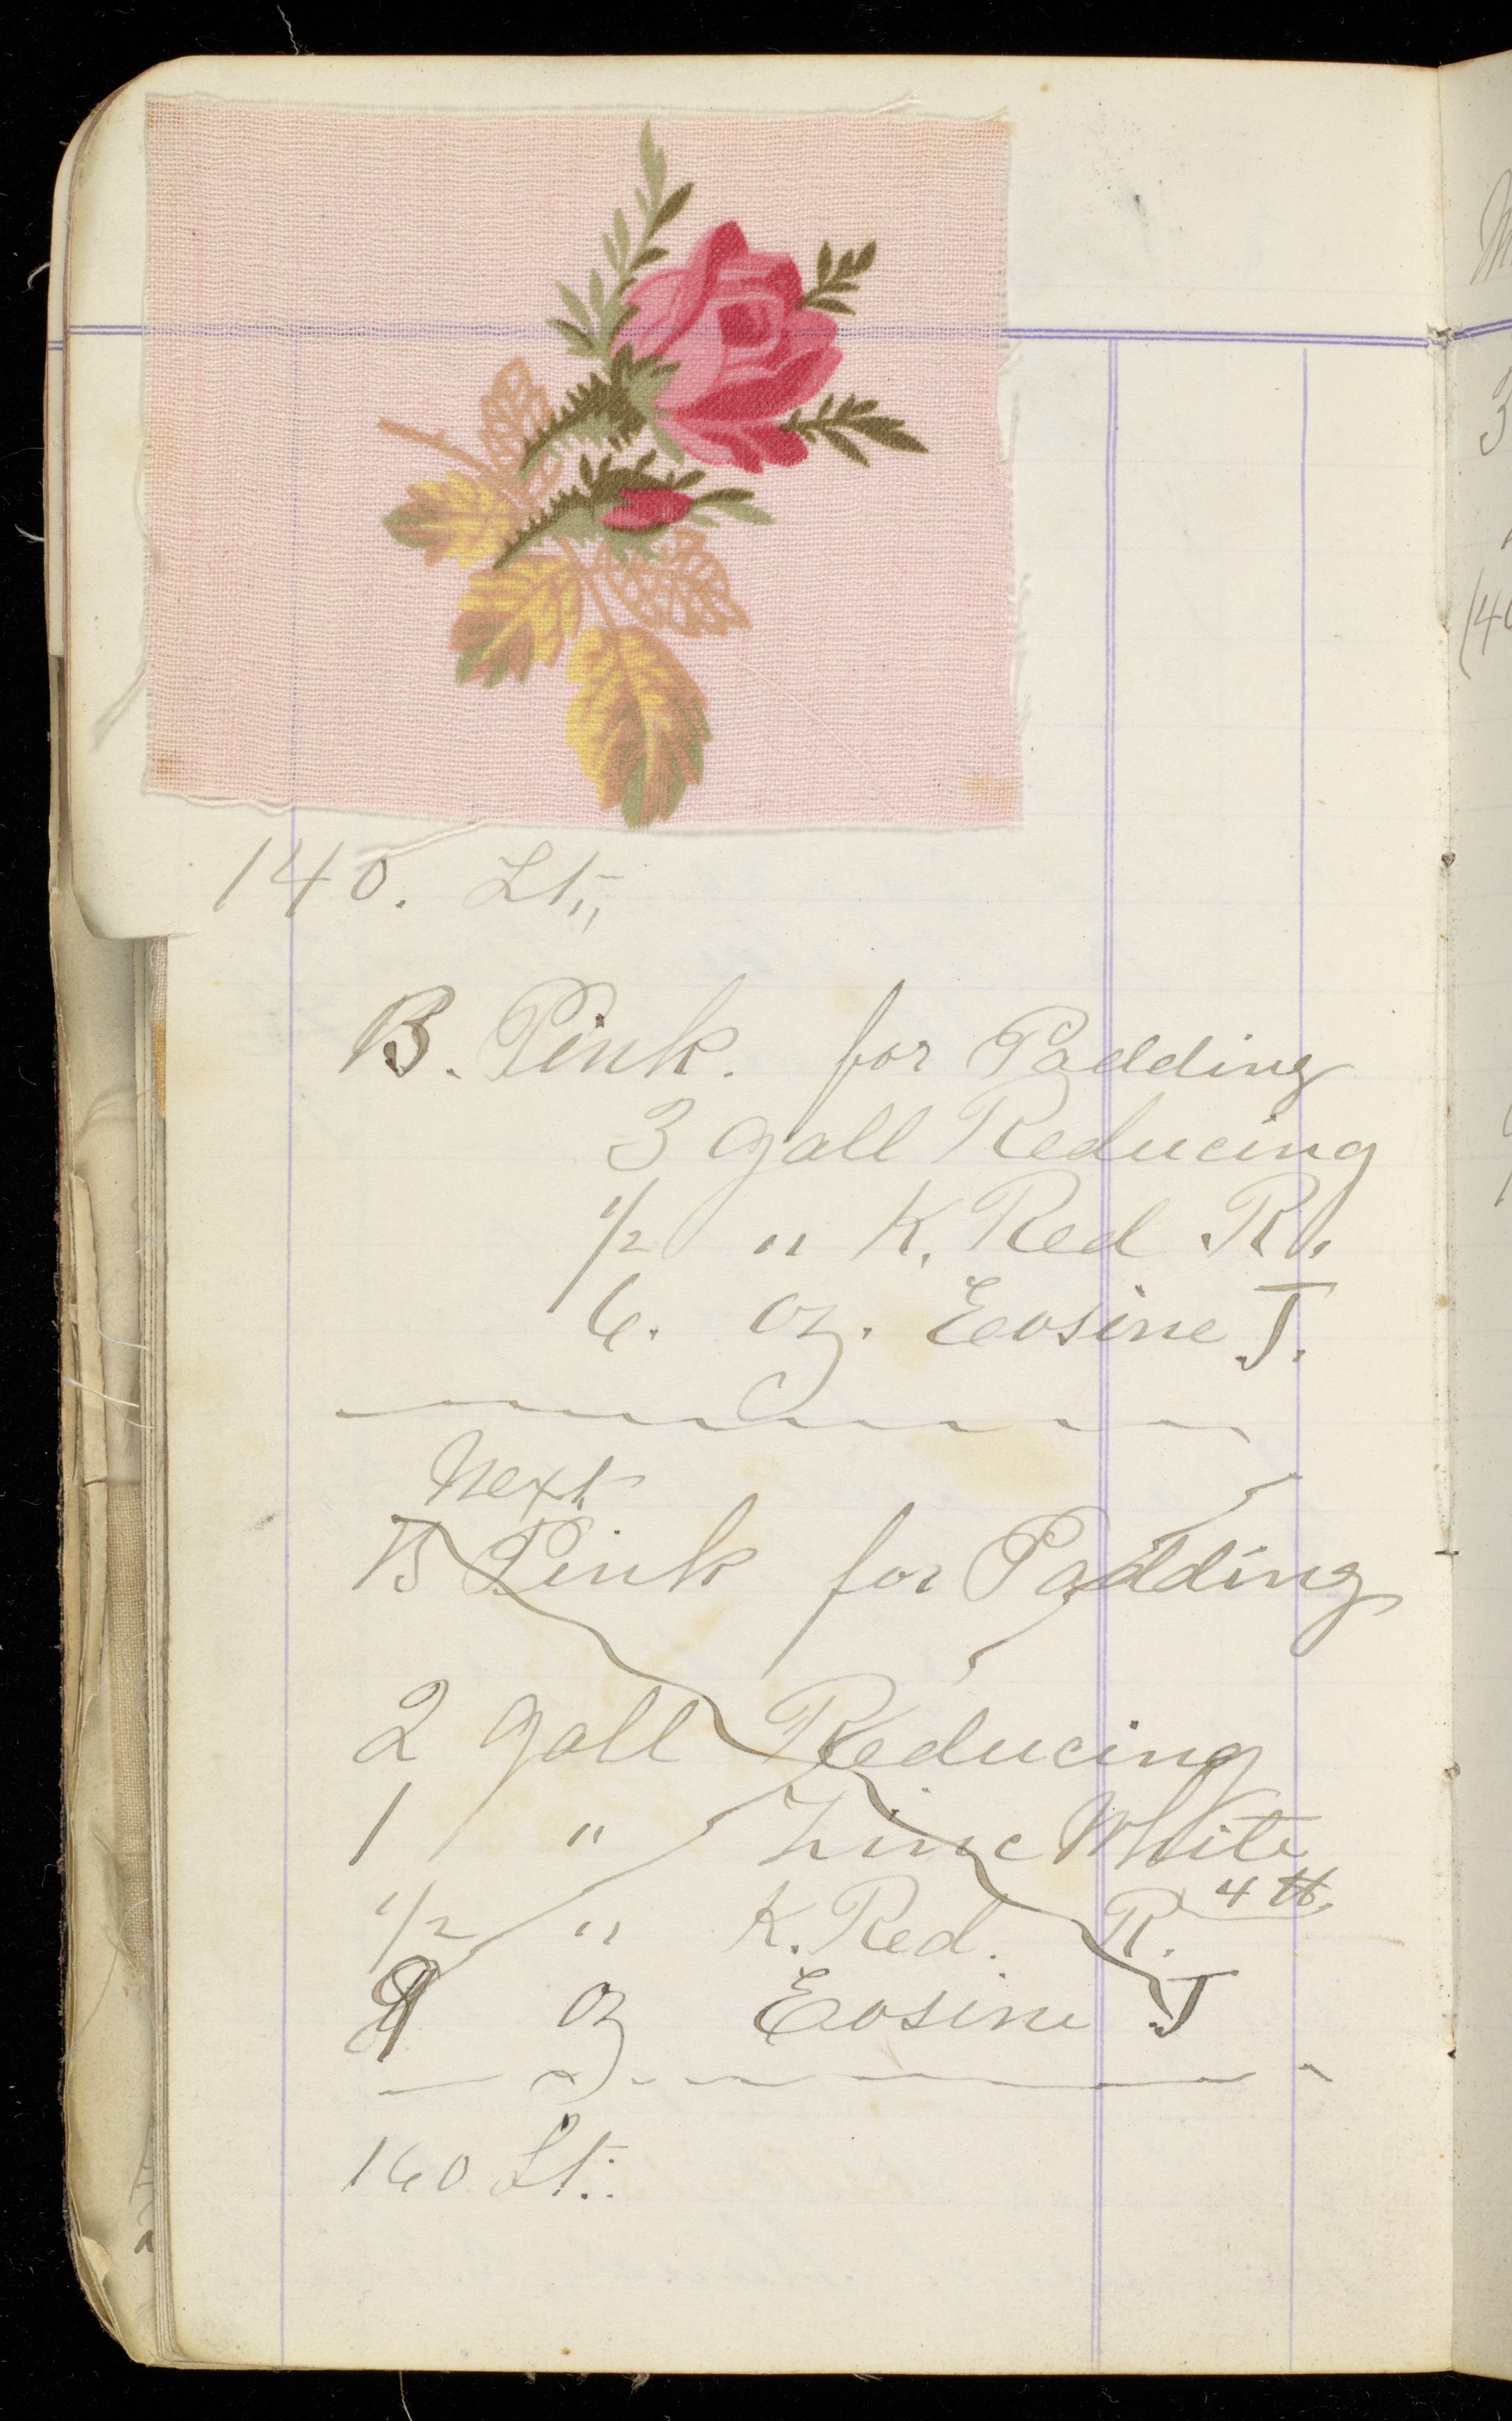 140. Lt,,
B. Pink. for Padding
3 gall Reducing
1/2 " K. Red R.
6. oz. Eosine J.
Next
B Pink for Padding
2 gall Reducing
1 " Zinc White
1/2 " K. Red. R. 4 lb.
9 oz Eosine J
160 Lt..